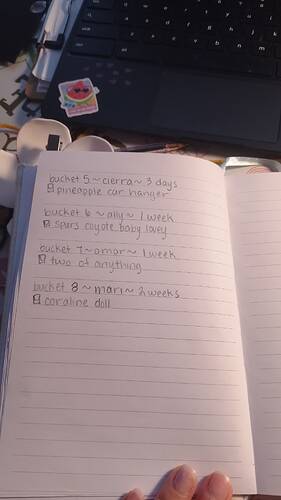 bucket 5 ~ cierra ~ 3 days
pineapple car hanger
bucket 6 ~ ally ~ 1 week
spurs coyote baby lovey
bucket 7 ~ omar ~ 1 week
two of anything
bucket 8 ~ mari ~ 2 weeks
coraline doll